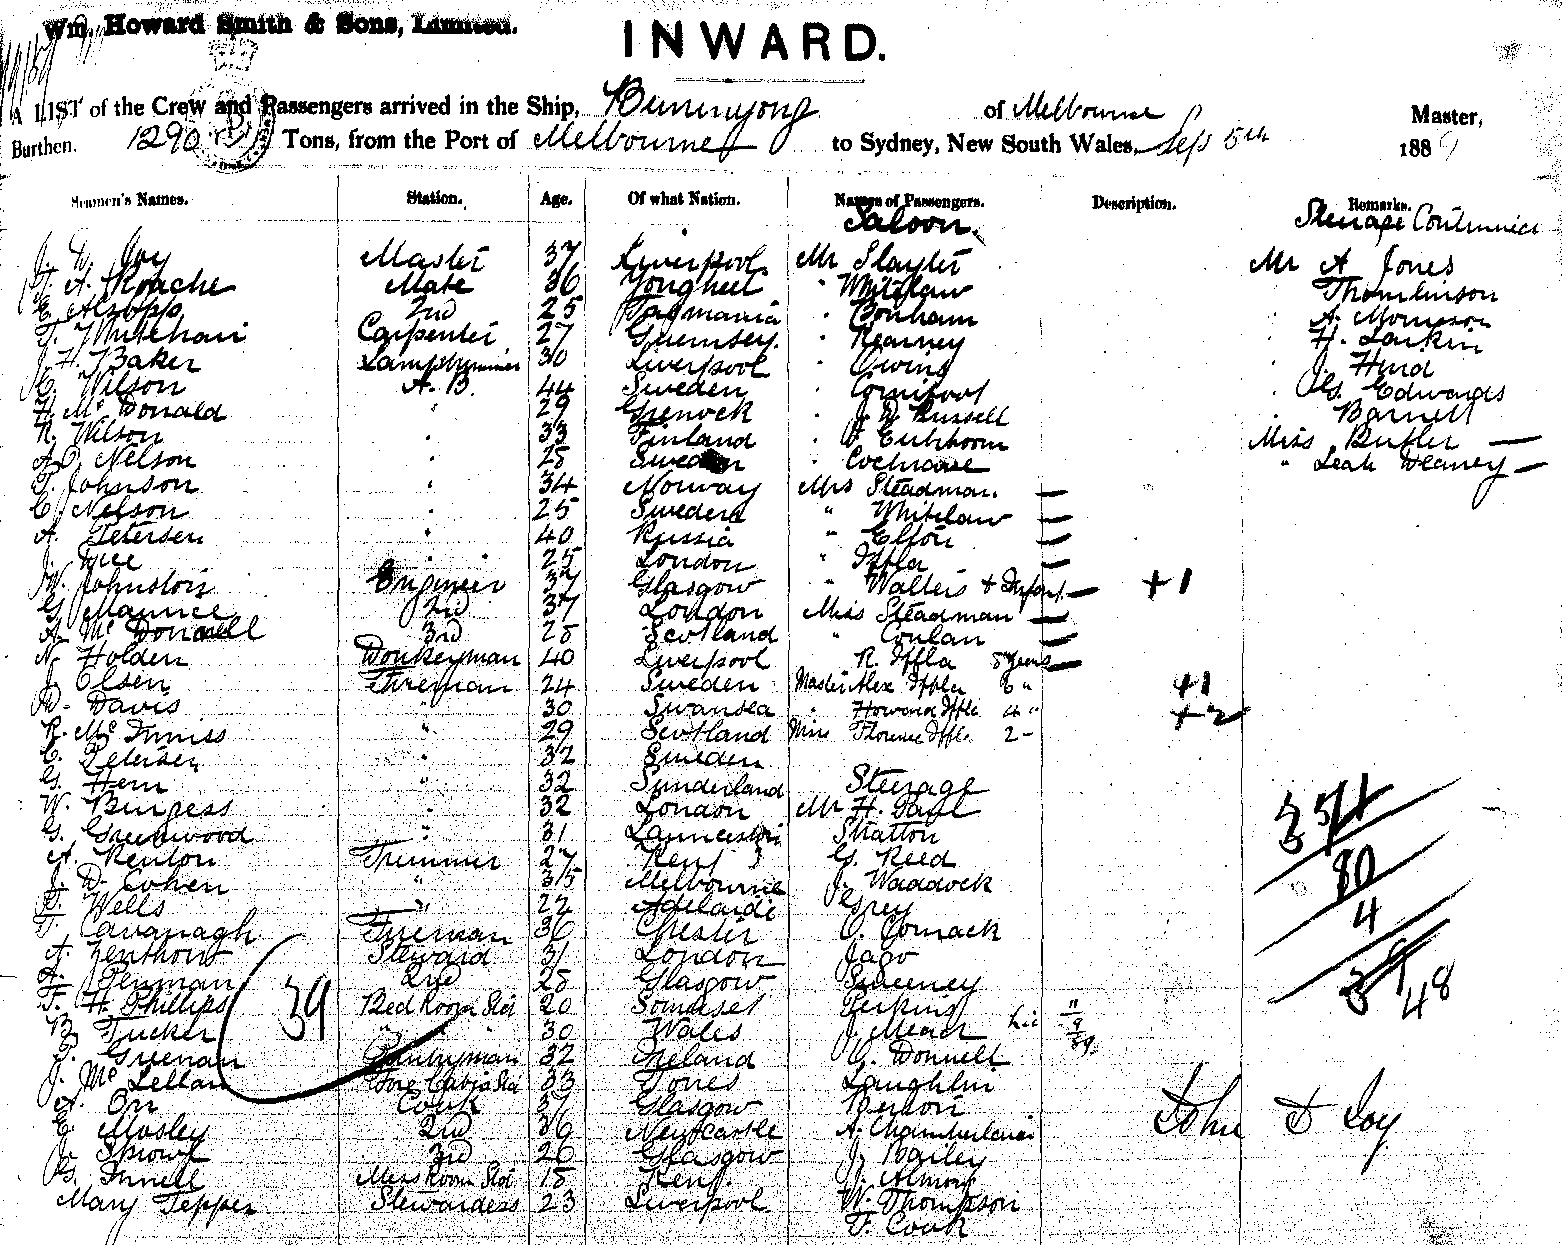 Wm. Howard Smith & Sons, Limited.
INWARD.
A LIST of the Crew and Passengers arrived in the Ship, Buninyong of Melbourne Master,
Burthen. 1290 Tons, from the Port of Melbourne to Sydney, New South Wales, Sep 5th 1889
Seamen's Names. Station. Age. Of what Nation. Names of Passengers. Description. Remarks.
Saloon. Steerage Continued
Master 37 Liverpool Mr Slayter Mr A Jones
A. Roache Mate 36 Yougheel " Whitelaw Thomlinson
E. Alsopp 2nd 25 Tasmania " Bonham A. Morrison
T. Whitehair Carpenter 27 Guernsey. " Kearney H. Larkin
J. H. Baker Lamptrimmer 30 Liverpool " Owins J. Hind
C. Wilson A.B. 44 Sweden " Cornifoot G. Edwards
H. McDonald " 29 Grenock " J. W. Russell Barnett
R. Wilson " 33 Finland " Miss Butler —
A. O. Nelson " 25 Sweden " Cochrane " Leah Deaney —
T. Johnson " 34 Norway Mrs Steadman. —
C. Nelson " 25 Sweden " Whitelaw —
A. Petersen " 40 Russia " Elton —
" 25 London " Iffla —
W. Johnston Engineer 37 Glasgow " Walters + Infant — +1
G. Maurice 2nd 37 London Miss Steadman —
A. McDonnell 3rd 28 Scotland " Conlan —
N. Holden Donkeyman 40 Liverpool R. Iffla 8 years —
J. Olsen Fireman 24 Sweden Master Alex Iffla 6 " +1
D. Davis " 30 Swansea " Howard Iffla 4 " +2
R. McInnis " 29 Scotland Miss Florence Iffla 2 -
C. Petersen " 32 Sweden
G. Hern " 32 Sunderland Steerage
W. Burgess " 32 London Mr H.
G. Greenwood " 31 Launceston Stratton
A. Renton Trimmer 27 Kent G. Reed 80
J. D. Cohen " 35 Melbourne J. Waddock
S. Wells " 22 Adelaide Grey 4
T. Cavanagh Fireman 36 Chester C. Comack
A. Steward 31 London Jago
A. Penman 2nd 28 Glasgow Sweeney 48
F. H. Phillips Bed Room Std 20 Somerset Perkins
B. Tucker " " 30 Wales J. Mear
39
S. Greenan Pantryman 32 Ireland C. Donnell
J. McLellan Fore Cabin Std 33 Jones Laughlin
A. Orr Cook 37 Glasgow
E. Mosley 2nd 36 Newcastle A. Chamberlain
3rd 26 Glasgow J. Bailey
G. Mess Room Std 18 Kent
Mary Tepper Stewardess 23 Liverpool W. Thompson
F. Cook
John W Joy